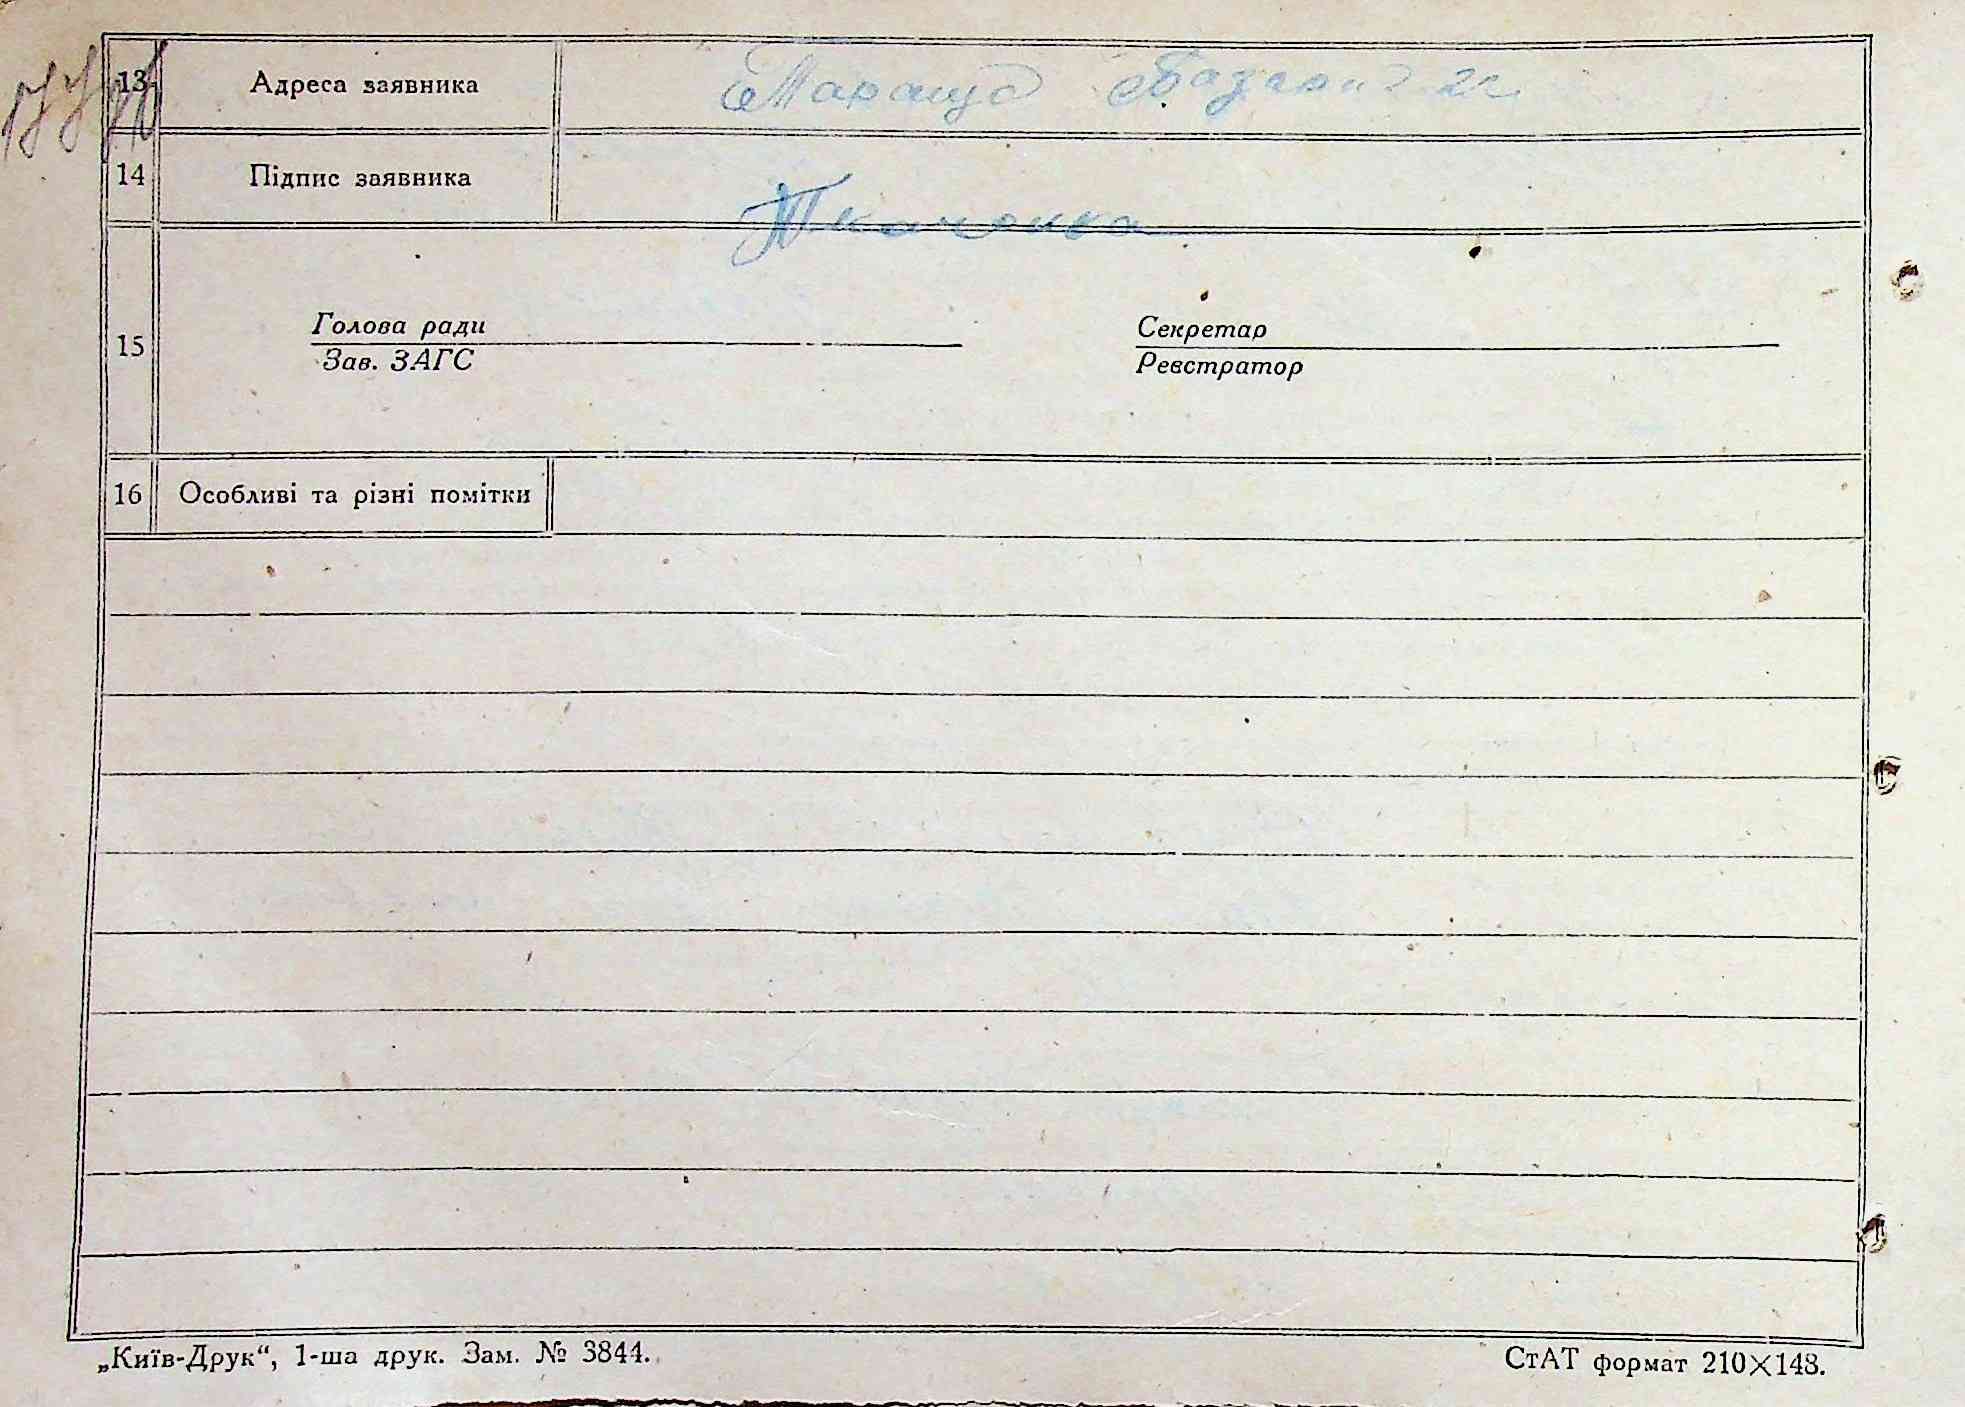 13 Адреса заявника Тараща
14 Підпис заявника Ткаченко
15
Голова ради Секретар
Зав. ЗАГС Реєстратор
16 Особливі та різні помітки
„Київ-Друк“, 1-ша друк. Зам. № 3844.
СтАТ формат 210×148.